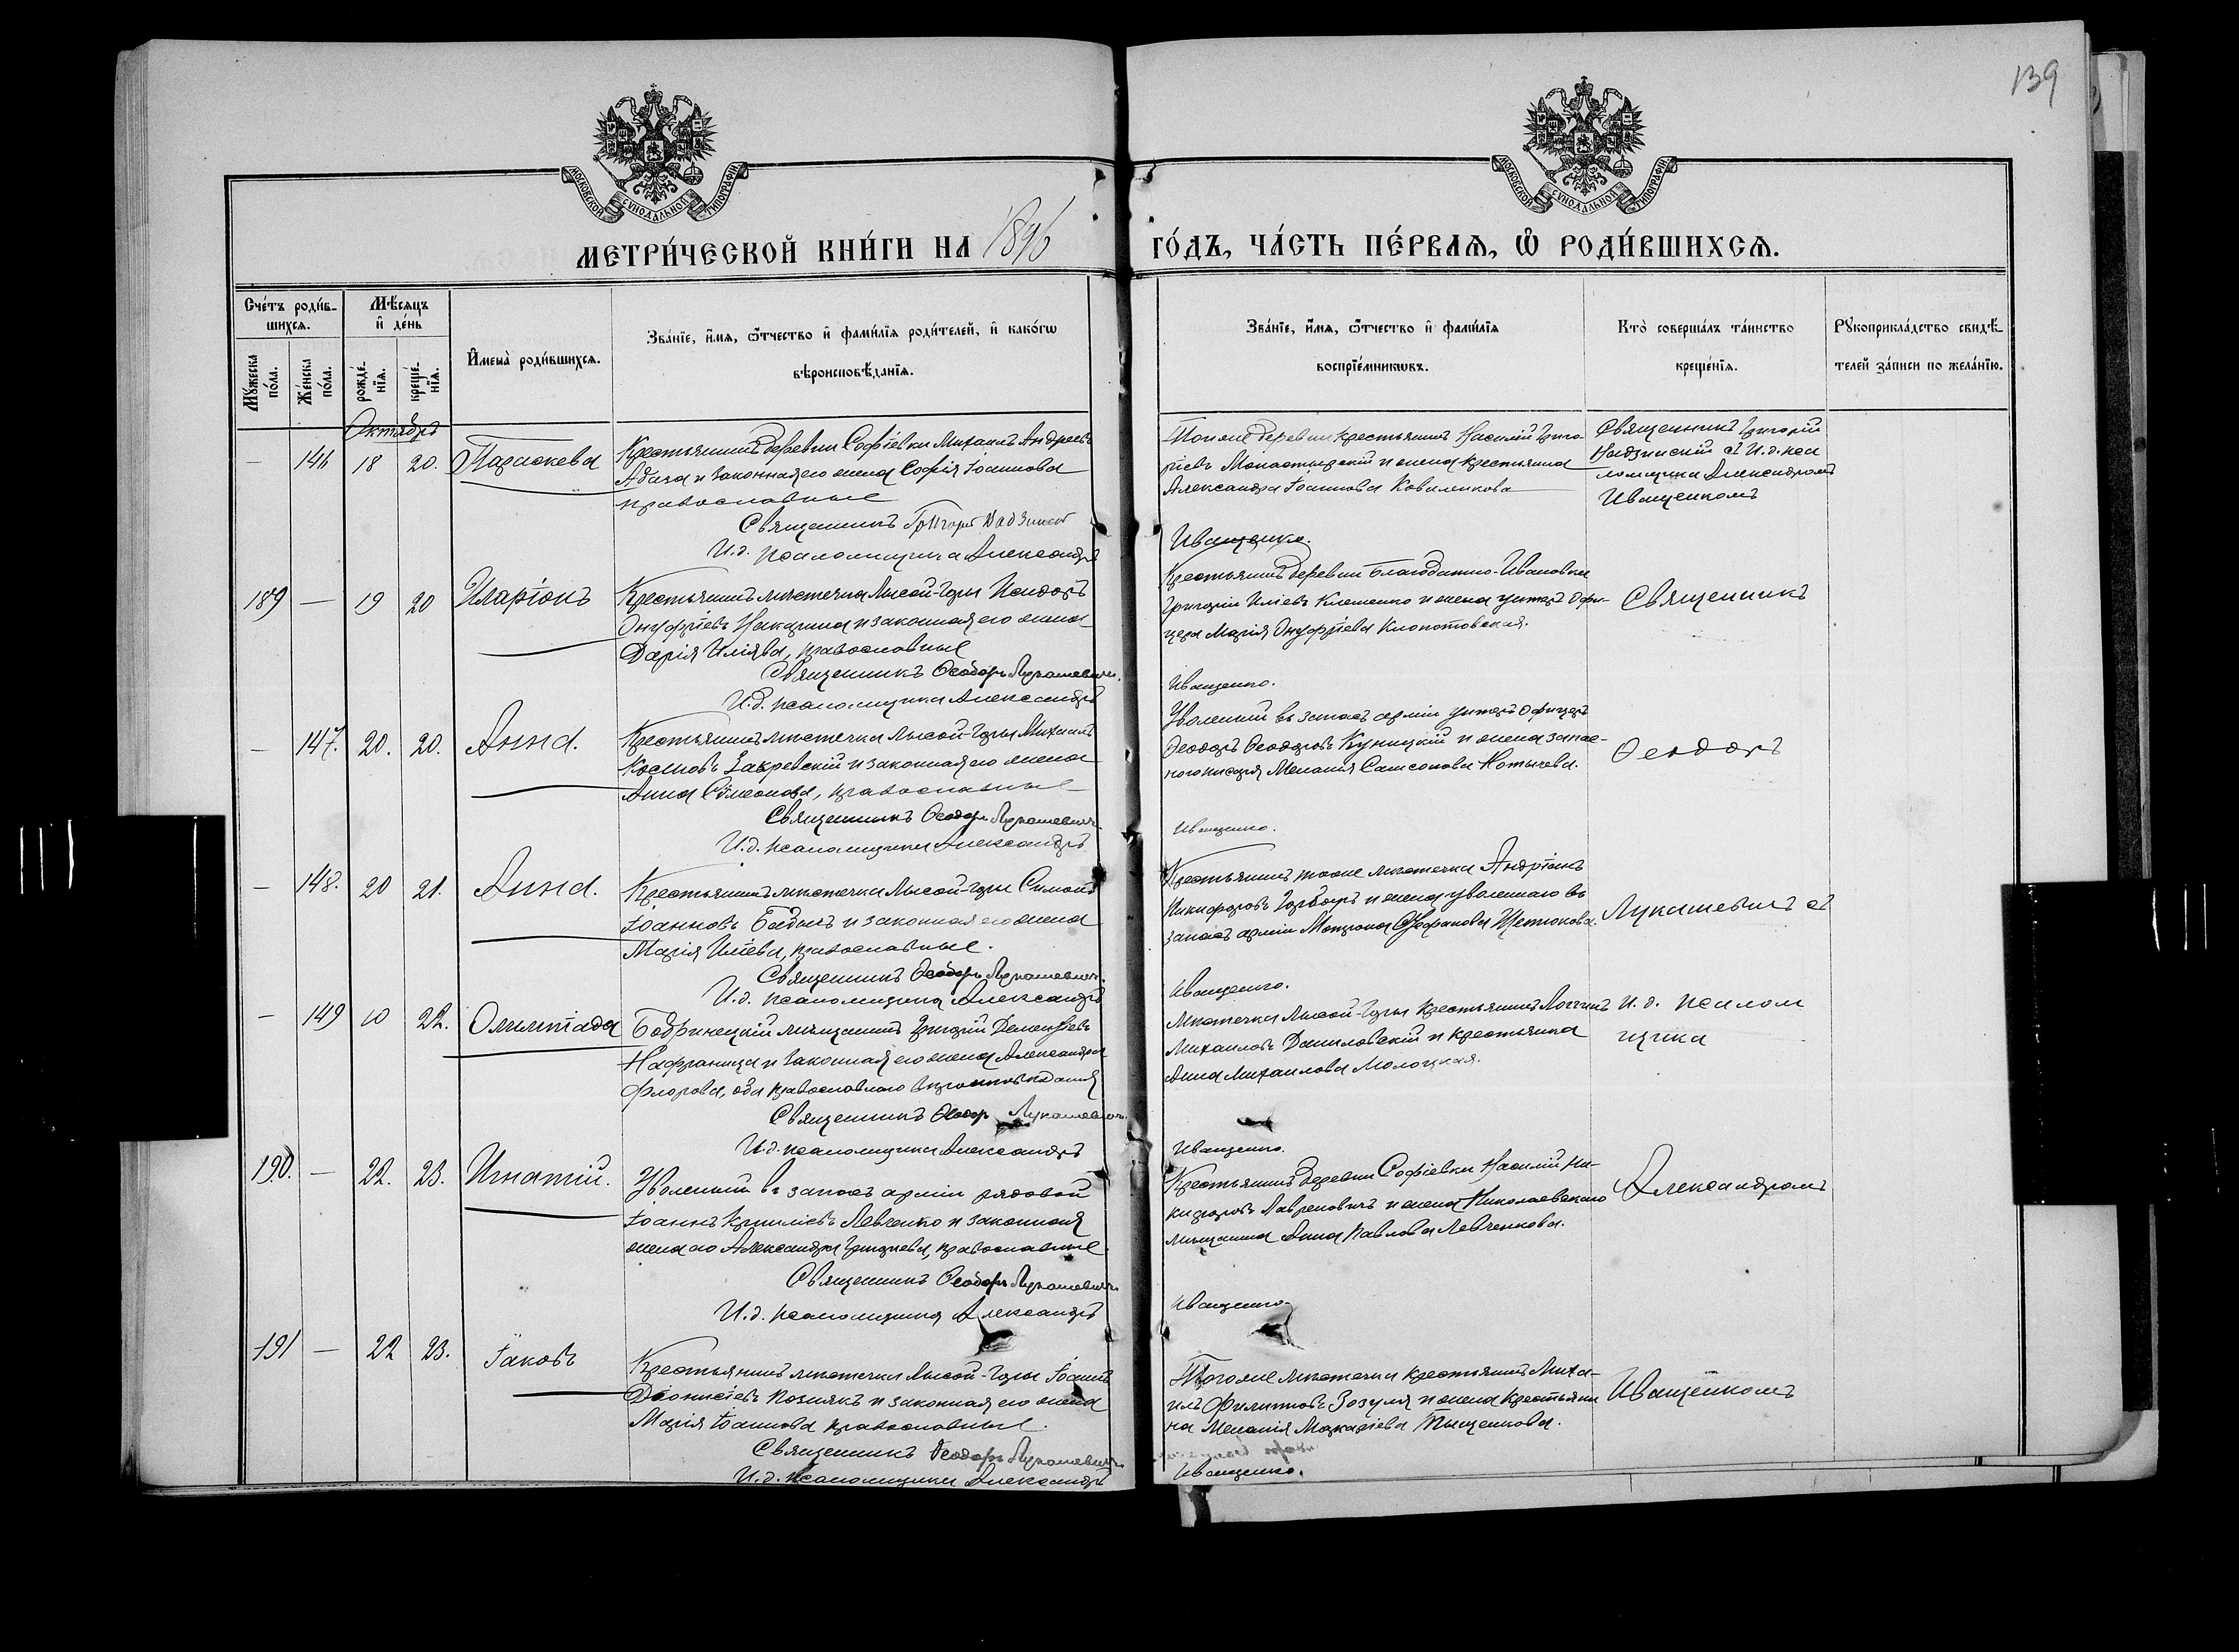 139
МОСКОВСКОЙ СѴНОДАЛЬНОЙ ТИПОГРАФІИ
МОСКОВСКОЙ СѴНОДАЛЬНОЙ ТИПОГРАФІИ
МЕТРИ́ЧЕСКОЙ КНИ́ГИ НА 1896 ГО́ДЪ, ЧА́СТЬ ПЕ́РВАѦ, Ѡ РОДИ́ВШИХСѦ.
Сче́тъ роди́в-
шихся.
Мꙋ́жеска по́ла.
Же́нска по́ла.
Мѣ́сяцъ и де́нь
рожде́-нїѧ.
креще́-нїѧ.
Имена̀ роди́вшихсѧ.
Зва́нїе, и́мѧ, ѻ́тчество и фами́лїѧ роди́телей, и како́гѡ
вѣроисповѣ́данїѧ.
Зва́нїе, и́мѧ, ѻ́тчество и фами́лїѧ
воспрїе́мникѡвъ.
Кто̀ соверша́лъ та́инство
креще́нїѧ.
Рꙋкоприкла́дство свидѣ́-
телей за́писи по жела́нїю.
Октябрь
— 146 18 20. Параскева
Крестьянинъ деревни Софіевки Михаилъ Андреевъ
и законная его жена Софія Іоаннова
православные
Священникъ Григорій
И.д. псаломщика Александръ
Тойже деревни крестьянинъ Василій Григо-
ріевъ Монастырскій и жена крестьянина
Александра Іоаннова Коваленкова
Иващенко.
Священникъ Григорій
съ И.д. пса
ломщика Александромъ
Иващенкомъ
189 — 19 20 Иларіонъ
Крестьянинъ мѣстечка Лысой-Горы Исидоръ
Онуфріевъ и законная его жена
Дарія Иліева, православные
Священникъ Ѳеодоръ Лукашевичъ.
И.д. псаломщика Александръ
Крестьянинъ деревни Благодатно-Ивановки
Григорій Иліевъ Клеменко и жена унтеръ офи-
цера Марія Онуфріева Клопотовская.
Иващенко.
Священникъ
— 147. 20. 20. Анна.
Крестьянинъ мѣстечка Лысой-Горы Михаилъ
Косминъ Закревскій и законная его жена
Анна Симеонова, православные
Священникъ Ѳеодоръ Лукашевичъ.
И.д. псаломщика Александръ
Уволенный въ запасъ арміи унтеръ офицеръ
Ѳеодоръ Ѳеодоровъ Куницкій и жена запас-
ного писаря Меланія Самсонова
Иващенко.
Ѳеодоръ
— 148. 20 21. Анна.
Крестьянинъ мѣстечка Лысой-Горы Симонъ
Іоанновъ и законная его жена
Марія Иліева, православные.
Священникъ Ѳеодоръ Лукашевичъ.
И.д. псаломщика Александръ
Крестьянинъ тоже мѣстечка Андріанъ
Никифоровъ Горбаръ и жена уволеннаго въ
запасъ арміи Матрона Стефанова
Иващенко.
Лукашевичъ съ
— 149 10 22. Олимпіада
Бобринецкій мѣщанинъ Григорій Дементіевъ
и законная его жена Александра
Флорова, оба православнаго вѣроисповѣданія
Священникъ Ѳеодоръ Лукашевичъ.
И.д. псаломщика Александръ
Мѣстечка Лысой-Горы крестьянинъ Логгинъ
Михаиловъ Даниловскій и крестьянка
Анна Михаилова Молоцкая.
Иващенко.
И. д. псалом
щика
190. — 22. 23. Игнатій.
Уволенный въ запасъ арміи рядовой
Іоаннъ Кирилловъ Левченко и законная
жена его Александра Григоріева, православные
Священникъ Ѳеодоръ Лукашевичъ.
И.д. псаломщика Александръ
Крестьянинъ деревни Софіевки Василій Ни-
кифоровъ Лавреновичъ и жена Николаевскаго
мѣщанина Анна Павлова Левченкова.
Иващенко.
Александромъ
191 — 22 23. Іаковъ
Крестьянинъ мѣстечка Лысой-Горы Іоаннъ
Діонисіевъ Познякъ и законная его жена
Марія Іоаннова православные.
Священникъ Ѳеодоръ Лукашевичъ.
И.д. псаломщика Александръ
Тогоже мѣстечка крестьянинъ Миха-
илъ Филипповъ Зозуля и жена крестьяни
на Меланія Макаріева Тыщенкова.
Иващенко.
Иващенкомъ